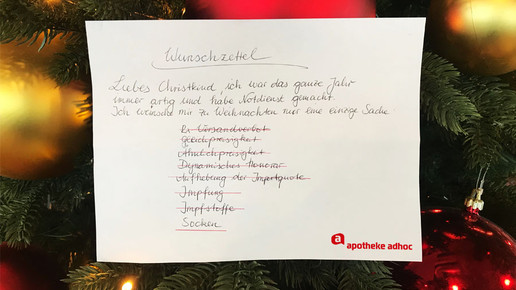 Wunschzettel
Liebes Christkind, ich war das ganze Jahr
immer artig und habe Notdienst gemacht.
Ich wünsche mir zu Weihnachten nur eine einzige Sache
Rx Versandverbot
Gleichpreisigkeit
Ähnlichpreisigkeit
Dynamisches Honorar
Aufhebung der Importquote
Impfung
Impfstoffe
Socken
a apotheke adhoc